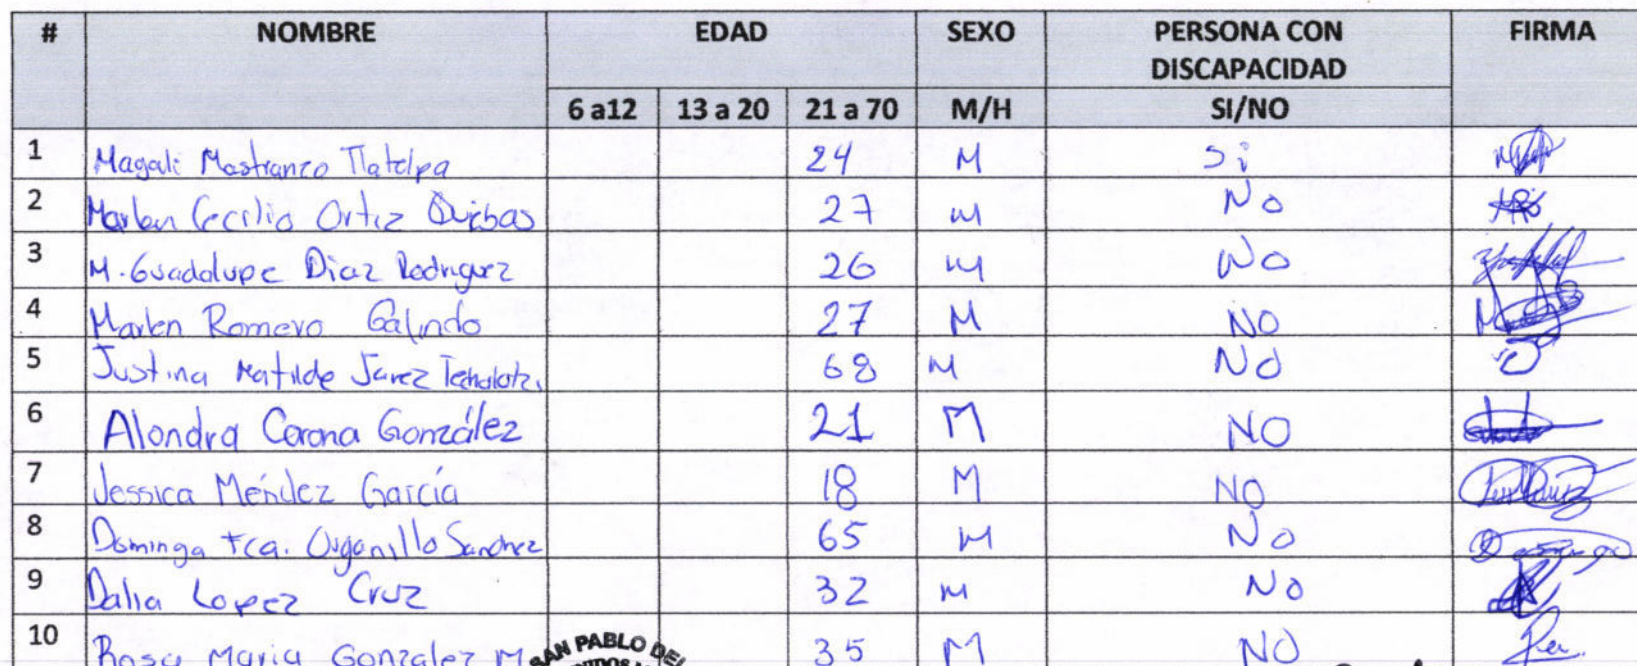 # NOMBRE EDAD SEXO PERSONA CON DISCAPACIDAD FIRMA
6 a12 13 a 20 21 a 70 M/H SI/NO
1 Magali Mastranzo Tlatelpa 24 M Si
2 Marlen Cecilia Ortiz 27 M No
3 M. Guadalupe Diaz Rodriguez 26 M No
4 Marlen Romero Galindo 27 M NO
5 Justina Matilde Juarez 68 M NO
6 Alondra Corona González 21 M NO
7 Jessica Méndez García 18 M NO
8 Dominga Fca. Sanchez 65 M No
9 Dalia Lopez Cruz 32 M No
10 Rosa Maria Gonzalez M 35 M NO
SAN PABLO DEL